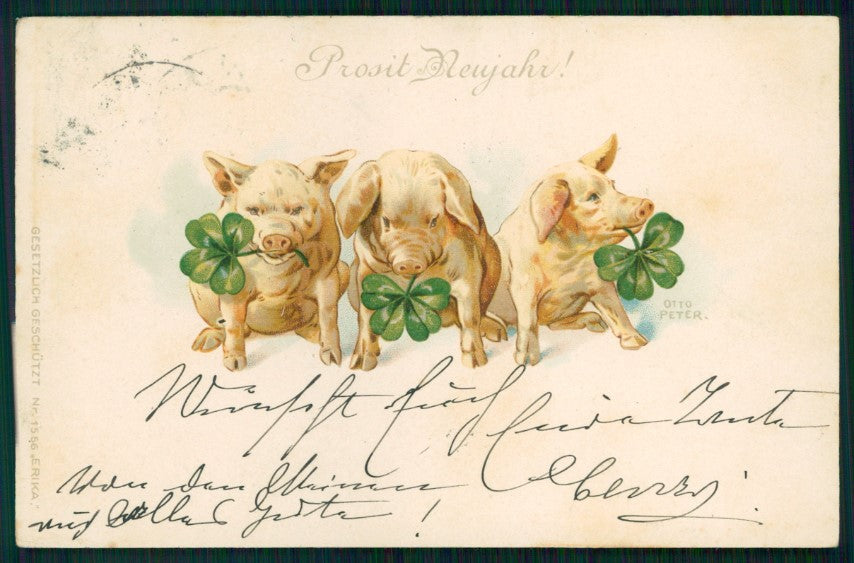 Prosit Neujahr!
GESETZLICH GESCHÜTZT Nr. 1556 „ERIKA“
OTTO
PETER.
Wünscht Euch
Von den Meinen
auch alles Gute!